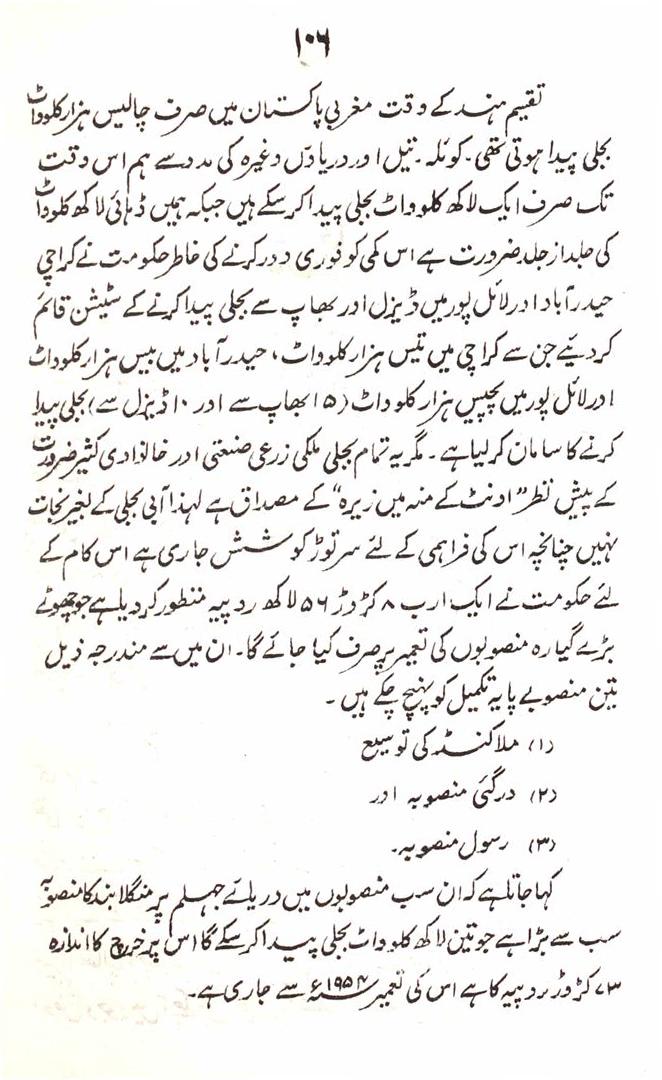 ۱۰۶
تقسیم ہند کے وقت مغربی پاکستان میں صرف چالیس ہزار کلوواٹ
بجلی پیدا ہوتی تھی۔ کوئلہ۔ تیل اور دریاؤں وغیرہ کی مدد سے ہم اس وقت
تک صرف ایک لاکھ کلوواٹ بجلی پیدا کر سکے ہیں جبکہ ہمیں ڈھائی لاکھ کلوواٹ
کی جلد از جلد ضرورت ہے اس کمی کو فوری دور کرنے کی خاطر حکومت نے کراچی
حیدرآباد اور لائل پور میں ڈیزل اور بھاپ سے بجلی پیدا کرنے کے سٹیشن قائم
کر دیئے جن سے کراچی میں تیس ہزار کلوواٹ، حیدرآباد میں بیس ہزار کلوواٹ
اور لائل پور میں پچیس ہزار کلوواٹ (۱۵ بھاپ سے اور ۱۰ ڈیزل سے) بجلی پیدا
کرنے کا سامان کر لیا ہے۔ مگر یہ تمام بجلی ملکی زرعی صنعتی اور خانوادی کثیر ضرورت
کے پیش نظر "اونٹ کے منہ میں زیرہ" کے مصداق ہے لہذا آبی بجلی کے بغیر نجات
نہیں چنانچہ اس کی فراہمی کے لئے سر توڑ کوشش جاری ہے اس کام کے
لئے حکومت نے ایک ارب ۸ کروڑ ۵۶ لاکھ روپیہ منظور کر دیا ہے جو چھوٹے
بڑے گیارہ منصوبوں کی تعمیر پر صرف کیا جائے گا۔ ان میں سے مندرجہ ذیل
تین منصوبے پایہ تکمیل کو پہنچ چکے ہیں۔
(۱) ملاکنڈ کی توسیع
(۲) درگئی منصوبہ اور
(۳) رسول منصوبہ۔
کہا جاتا ہے کہ ان سب منصوبوں میں دریائے جہلم پر منگلا بند کا منصوبہ
سب سے بڑا ہے جو تین لاکھ کلوواٹ بجلی پیدا کر سکے گا اس پر خرچ کا اندازہ
۷۳ کروڑ روپیہ کا ہے اس کی تعمیر ۱۹۵۴ء سے جاری ہے۔